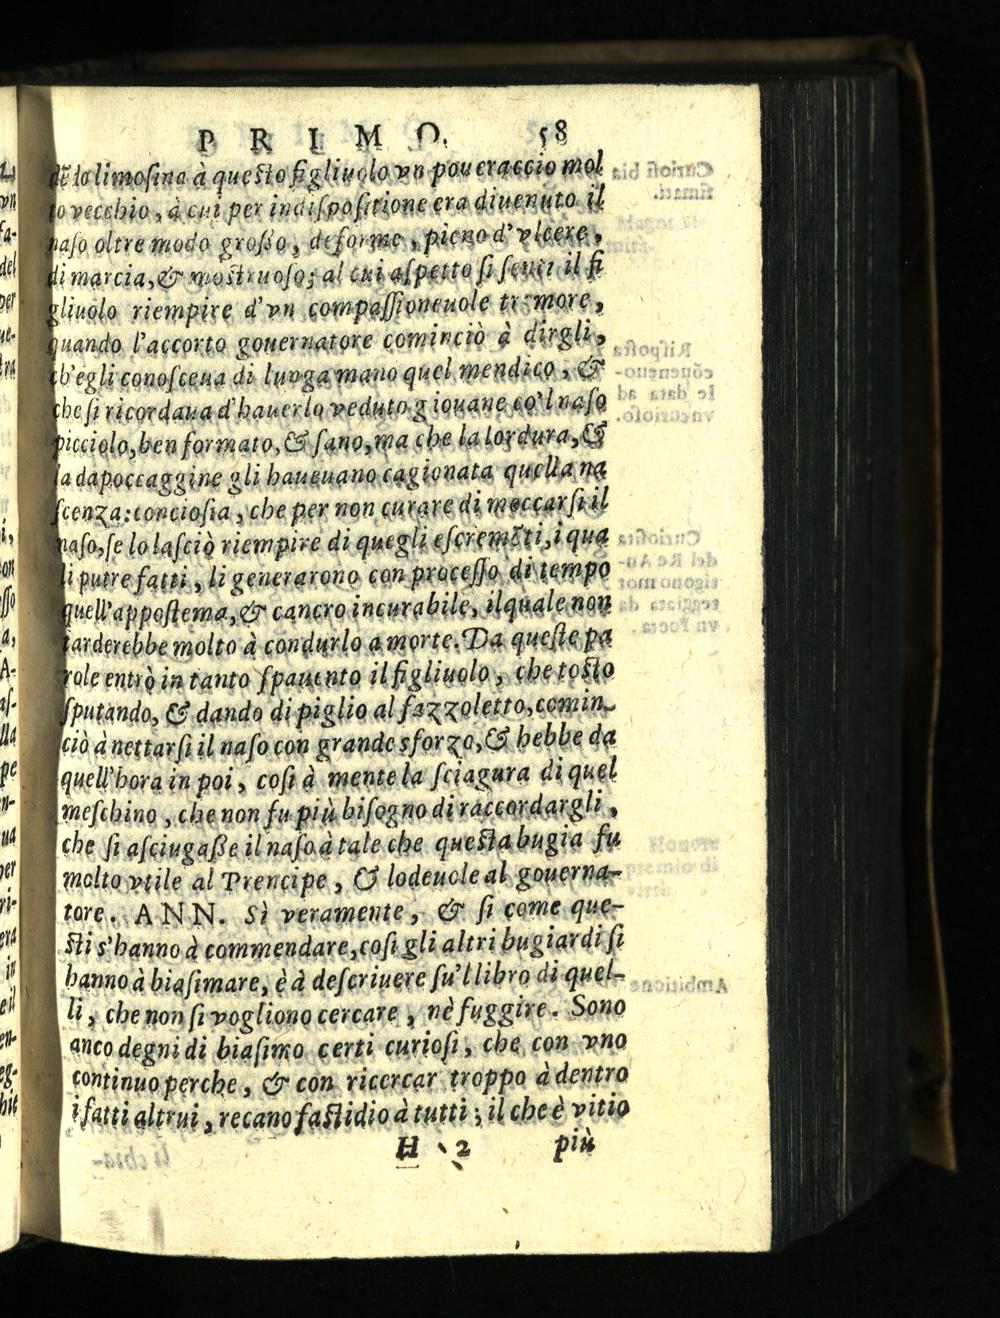 PRIMO. 58
dẽ la limosina à questo figliuolo vn poueraccio mol
to vecchio, à cui per indispositione era diuenuto il
naso oltre modo grosso, deforme, pieno d'vlcere,
di marcia, & mostruoso; al cui aspetto si sentì il fi
gliuolo riempire d'vn compassioneuole tremore,
quando l'accorto gouernatore cominciò à dirgli,
ch'egli conosceua di lunga mano quel mendico, &
che si ricordaua d'hauerlo veduto giouane co'l naso
picciolo, ben formato, & sano, ma che la lordura, &
la dapoccaggine gli haueuano cagionata quella na
scenza: conciosia, che per non curare di moccarsi il
naso, se lo lasciò riempire di quegli escremẽti, i qua
li putrefatti, li generarono con processo di tempo
quell'appostema, & cancro incurabile, ilquale non
tarderebbe molto à condurlo a morte. Da queste pa
role entrò in tanto spauento il figliuolo, che tosto
sputando, & dando di piglio al fazzoletto, comin-
ciò à nettarsi il naso con grande sforzo, & hebbe da
quell'hora in poi, cosi à mente la sciagura di quel
meschino, che non fu più bisogno di raccordargli,
che si asciugasse il naso à tale che questa bugia fu
molto vtile al Prencipe, & lodeuole al gouerna-
tore. ANN. Sì veramente, & si come que-
sti s'hanno à commendare, cosi gli altri bugiardi si
hanno à biasimare, è à descriuere su'l libro di quel-
li, che non si vogliono cercare, nè fuggire. Sono
anco degni di biasimo certi curiosi, che con vno
continuo perche, & con ricercar troppo à dentro
i fatti altrui, recano fastidio à tutti; il che è vitio
H 2 più